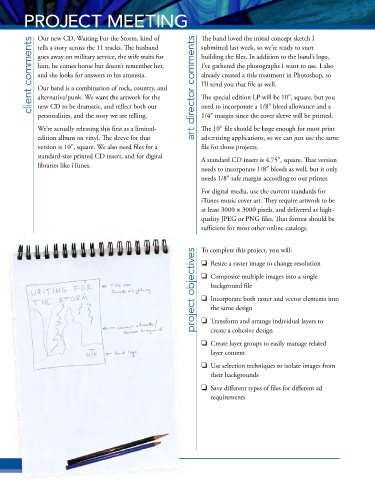 PROJECT MEETING
client comments
Our new CD, Waiting For the Storm, kind of
tells a story across the 11 tracks. The husband
goes away on military service, the wife waits for
him, he comes home but doesn't remember her,
and she looks for answers to his amnesia.
Our band is a combination of rock, country, and
alternative/punk. We want the artwork for the
new CD to be dramatic, and reflect both our
personalities, and the story we are telling.
We're actually releasing this first as a limited-
edition album on vinyl. The sleeve for that
version is 10", square. We also need files for a
standard-size printed CD insert, and for digital
libraries like iTunes.
art director comments
The band loved the initial concept sketch I
submitted last week, so we're ready to start
building the files. In addition to the band's logo,
I've gathered the photographs I want to use. I also
already created a title treatment in Photoshop, so
I'll send you that file as well.
The special edition LP will be 10", square, but you
need to incorporate a 1/8" bleed allowance and a
1/4" margin since the cover sleeve will be printed.
The 10" file should be large enough for most print
advertising applications, so we can just use the same
file for those projects.
A standard CD insert is 4.75", square. That version
needs to incorporate 1/8" bleeds as well, but it only
needs 1/8" safe margin according to our printer.
For digital media, use the current standards for
iTunes music cover art. They require artwork to be
at least 3000 × 3000 pixels, and delivered as high-
quality JPEG or PNG files. That format should be
sufficient for most other online catalogs.
project objectives
To complete this project, you will:
❏ Resize a raster image to change resolution
❏ Composite multiple images into a single
background file
❏ Incorporate both raster and vector elements into
the same design
❏ Transform and arrange individual layers to
create a cohesive design
❏ Create layer groups to easily manage related
layer content
❏ Use selection techniques to isolate images from
their backgrounds
❏ Save different types of files for different ad
requirements
WAITING FOR
THE STORM